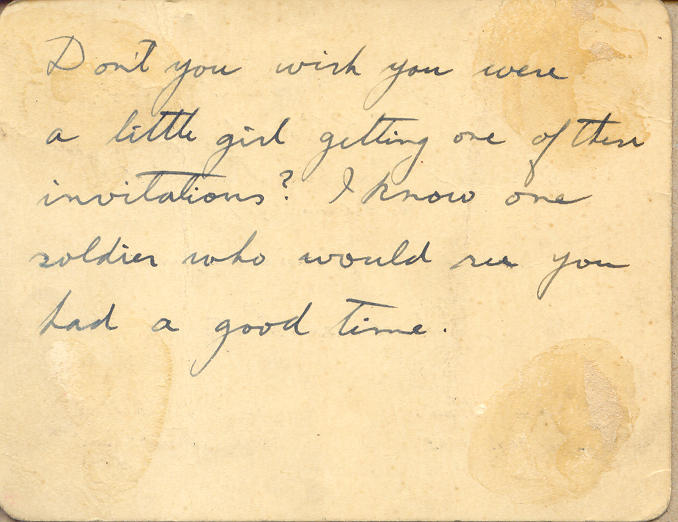 Don't you wish you were
a little girl getting one of these
invitations? I know one
soldier who would see you
had a good time.